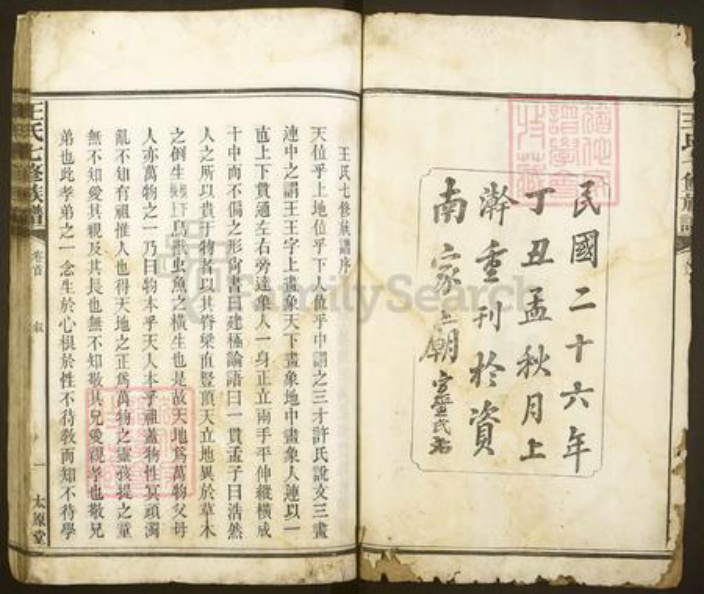 民國二十六年
丁丑孟秋月上
澣重刊於資
南家上朝
王氏七修族譜序
天位乎上地位乎下人位乎中謂之三才許氏說文三畫
連中之謂王王字上畫象天下畫象地中畫象人連以一
直上下貫通左右旁達象人一身正立兩手平伸縱橫成
十中而不偏之形尙書曰建極論語曰一貫孟子曰浩然
人之所以貴于物者以其脊梁直豎頂天立地異於草木
之倒生鳥獸虫魚之橫生也是故天地爲萬物父母
人亦萬物之一乃曰物本乎天人本乎祖蓋物性冥頑濁
亂不知有祖惟人也得天地之正爲萬物之靈孩提之童
無不知愛其親及其長也無不知敬其兄愛親孝也敬兄
弟也此孝弟之一念生於心根於性不待敎而知不待學
王氏七修族譜
卷首
敘
一
太原堂
FamilySearch